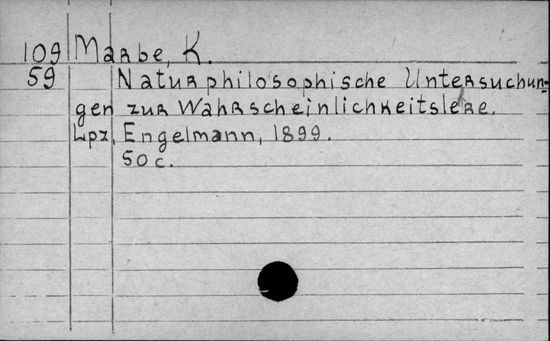 109 Marbe, K.
59 Naturphilosophische Untersuchun-
gen zur Wahrscheinlichkeitslere.
Lpz, Engelmann, 1899.
50 c.